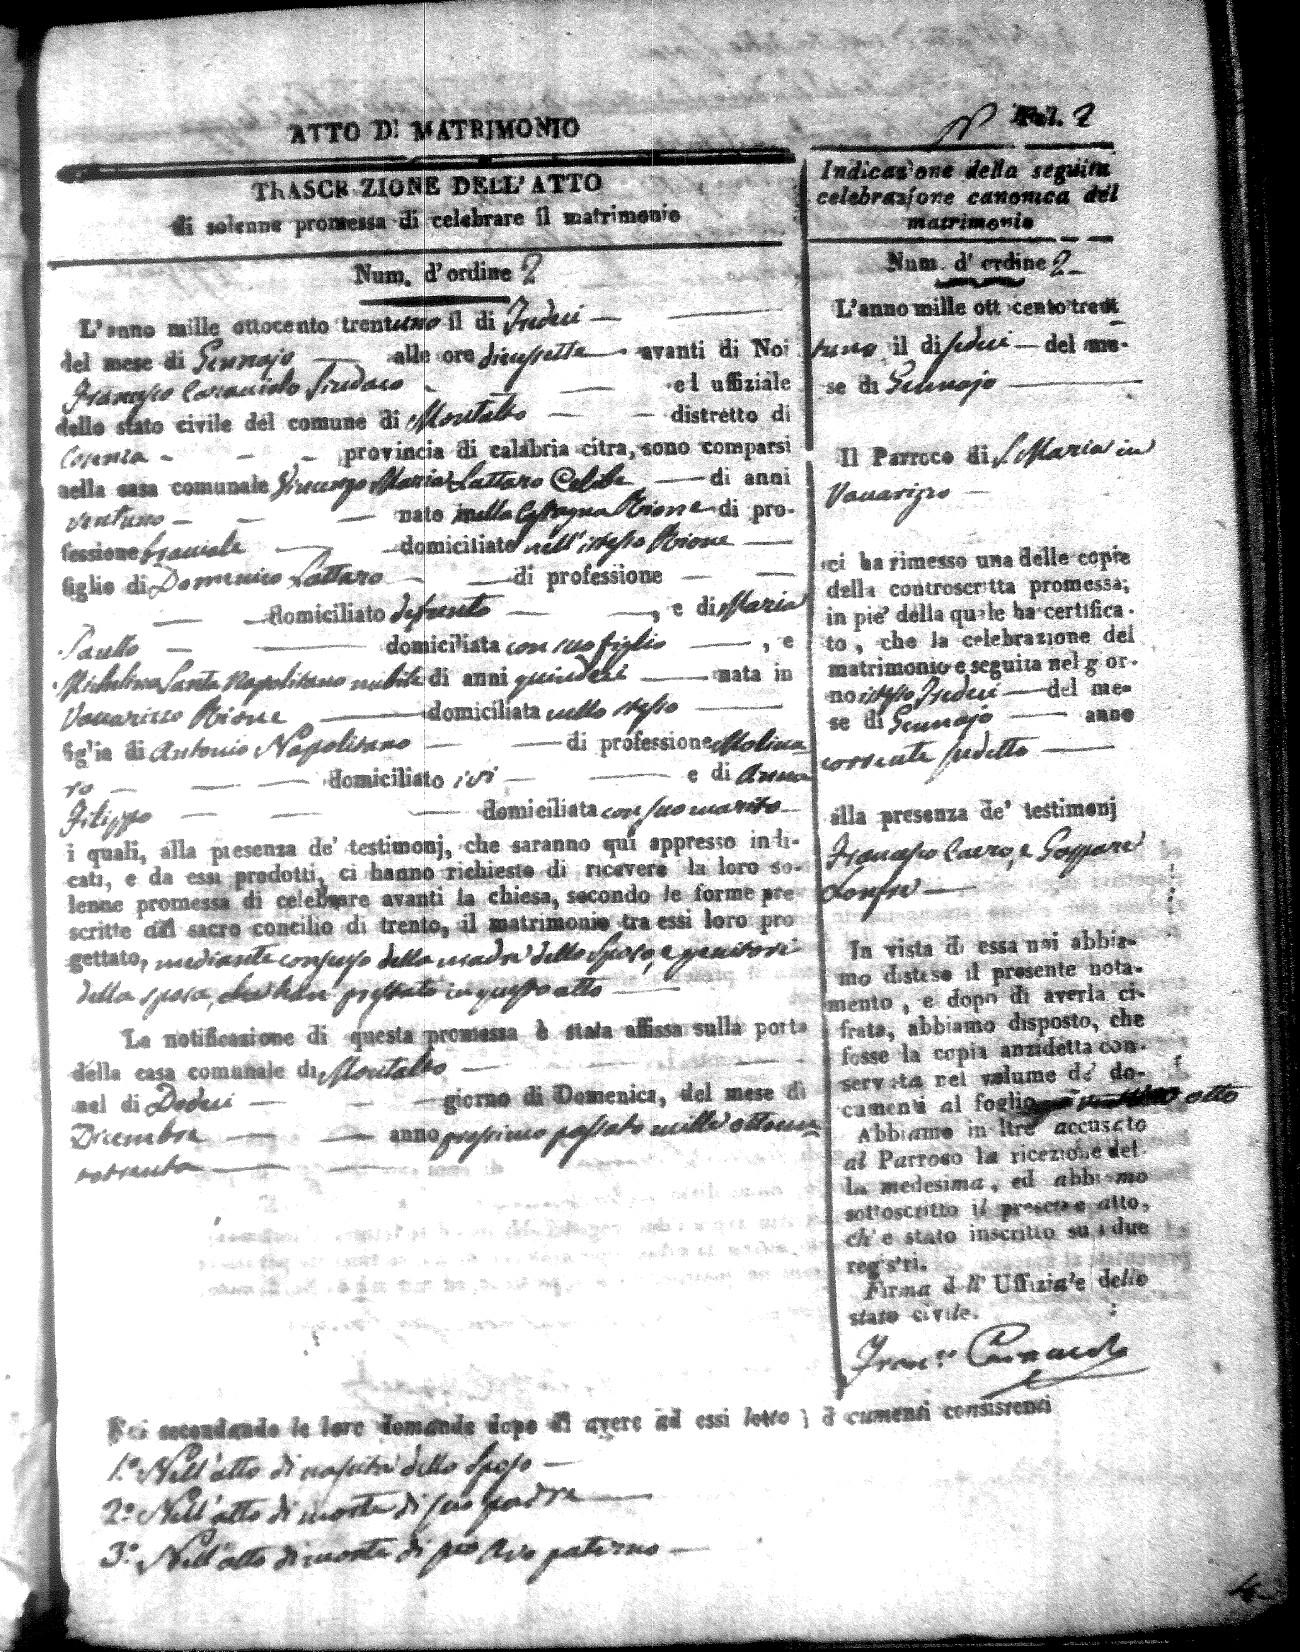 Fol. 2
ATTO DI MATRIMONIO
TRASCRIZIONE DELL'ATTO
di solenne promessa di celebrare il matrimonio
Num. d'ordine 2
L'anno mille ottocento trentuno il di Tredici
del mese di Gennajo alle ore diecissette avanti di Noi
Francesco Sindaco ed uffiziale
dello stato civile del comune di Montalto distretto di
Cosenza provincia di calabria citra, sono comparsi
nella casa comunale Vincenzo Maria Lattaro Celibe di anni
ventuno nato nella Rione di pro-
fessione domiciliato nell'istesso Rione
figlio di Domenico Lattaro di professione
domiciliato defunto, e di Maria
domiciliata con suo figlio, e
Santa Napolitano nubile di anni quindici nata in
Vaccarizzo Rione domiciliata nello stesso
figlia di Antonio Napolitano di professione Molina
ro domiciliato ivi e di Anna
Filippo domiciliata con suo marito
i quali, alla presenza de' testimonj, che saranno qui appresso indi-
cati, e da essi prodotti, ci hanno richiesto di ricevere la loro so-
lenne promessa di celebrare avanti la chiesa, secondo le forme pre
scritte dal sacro concilio di trento, il matrimonio tra essi loro pro
gettato, mediante consenso della madre dello Sposo, e genitori
della sposa, prestato in questo atto
La notificazione di questa promessa è stata affissa sulla porta
della casa comunale di Montalto
nel di Dodici giorno di Domenica, del mese di
Dicembre anno prossimo passato mille ottocen
totrenta
Indicazione della seguita
celebrazione canonica del
matrimonio
Num. d'ordine 2
L'anno mille ottocento trent
uno il di sedici del me-
se di Gennajo
Il Parroco di S. Maria in
Vaccarizzo
ci ha rimesso una delle copie
della controscritta promessa;
in piè della quale ha certifica-
to, che la celebrazione del
matrimonio e seguita nel gior-
no istesso Tredici del me-
se di Gennajo anno
corrente sudetto
alla presenza de' testimonj
Francesco e Gaspare
In vista di essa noi abbia-
mo disteso il presente nota-
mento, e dopo di averla ci-
frata, abbiamo disposto, che
fosse la copia anzidetta con-
servata nel volume de' do-
cumenti al foglio otto
Abbiamo inoltre accusato
al Parroco la ricezione del-
la medesima, ed abbiamo
sottoscritto il presente atto,
ch'è stato inscritto su i due
registri.
Firma dell'Uffiziale dello
stato civile.
Noi secondando le loro domande dopo di avere ad essi letto i documenti consistenti
1.º Nell'atto di nascita dello Sposo
2.º Nell'atto di morte di suo padre
3.º Nell'atto di morte di suo Avo paterno